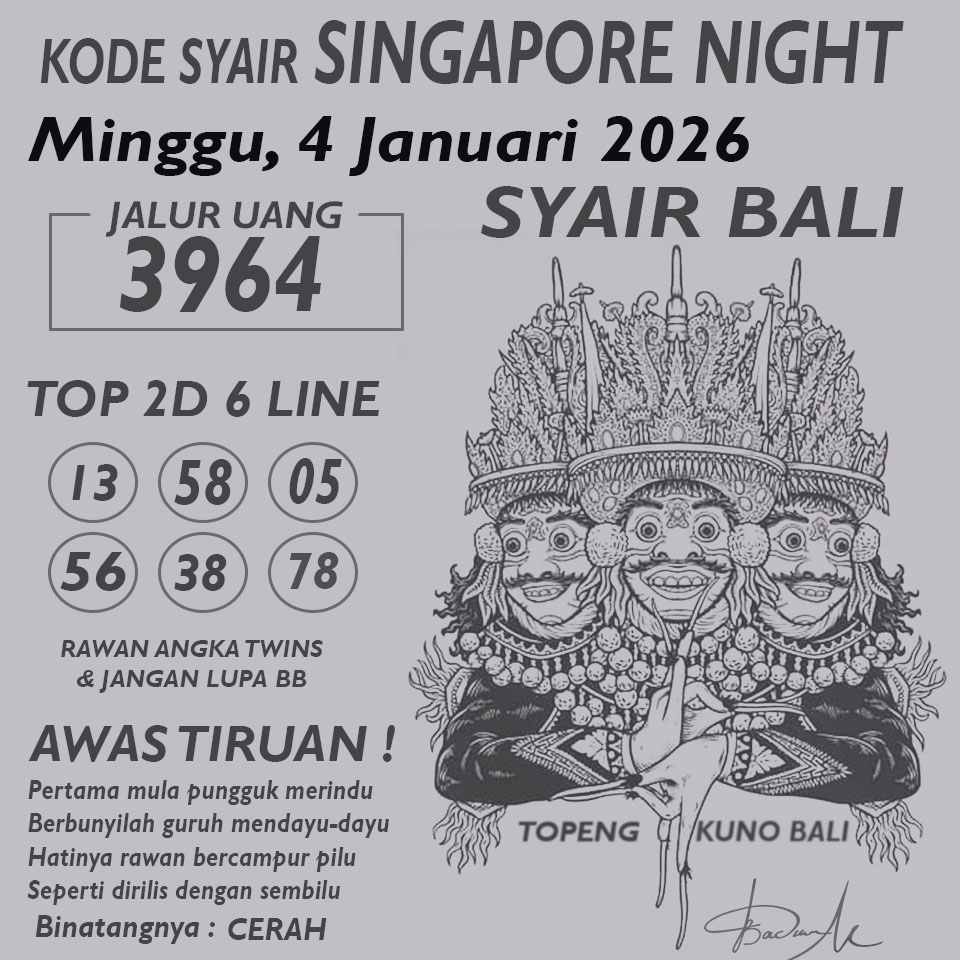 KODE SYAIR SINGAPORE NIGHT
Minggu, 4 Januari 2026
SYAIR BALI
JALUR UANG
3964
TOP 2D 6 LINE
13 58 05
56 38 78
RAWAN ANGKA TWINS
& JANGAN LUPA BB
AWAS TIRUAN !
Pertama mula pungguk merindu
Berbunyilah guruh mendayu-dayu
Hatinya rawan bercampur pilu
Seperti dirilis dengan sembilu
Binatangnya : CERAH
TOPENG KUNO BALI